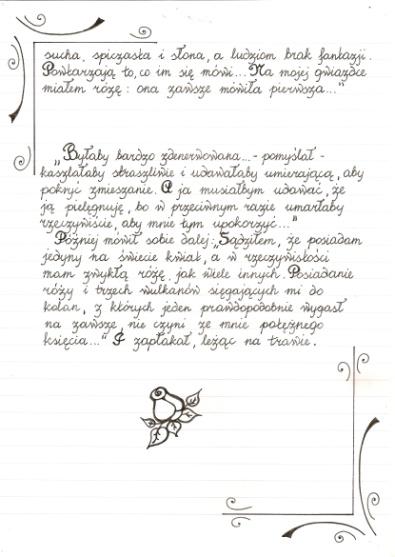 sucha, spiczasta i słona, a ludziom brak fantazji.
Powtarzają to, co im się mówi... Na mojej gwiazdce
miałem różę: ona zawsze mówiła pierwsza..."
„Byłaby bardzo zdenerwowana... - pomyślał -
kaszlałaby straszliwie i udawałaby umierającą, aby
pokryć zmieszanie. A ja musiałbym udawać, że
ją pielęgnuję, bo w przeciwnym razie umarłaby
rzeczywiście, aby mnie tym upokorzyć..."
Później mówił sobie dalej: „Sądziłem, że posiadam
jedyny na świecie kwiat, a w rzeczywistości
mam zwykłą różę jak wiele innych. Posiadanie
róży i trzech wulkanów sięgających mi do
kolan, z których jeden prawdopodobnie wygasł
na zawsze, nie czyni ze mnie potężnego
księcia..." I zapłakał, leżąc na trawie.